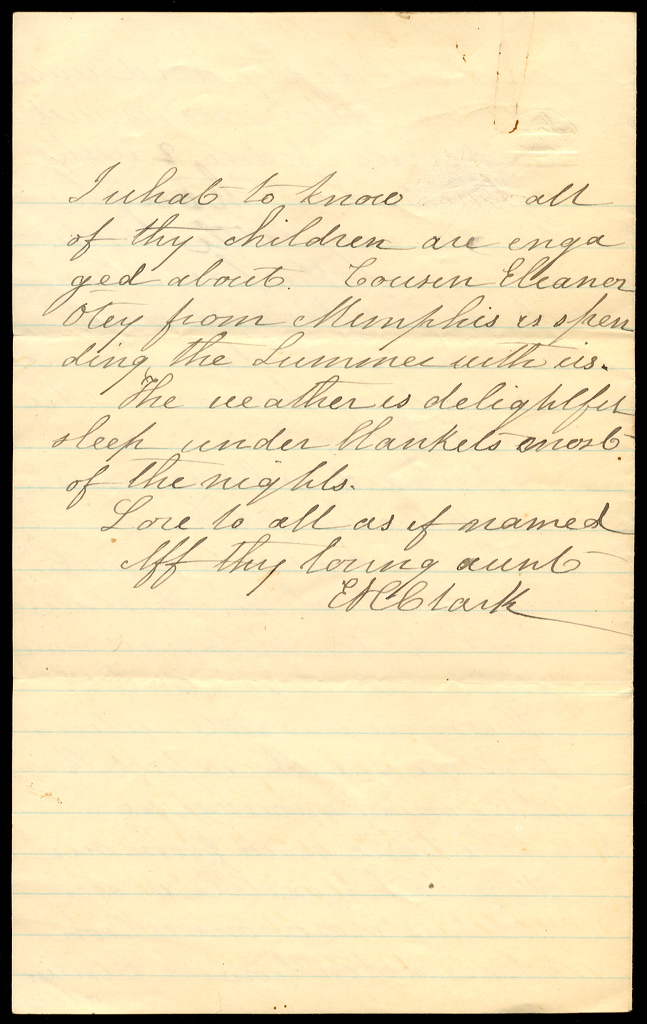 I what to know all
of thy children are enga
ged about. Cousin Eleanor
Otey from Memphis is spen
ding the Summer with us.
The weather is delightful
sleep under blankets most
of the nights.
Love to all as if named
Aff thy loving aunt
E H Clark